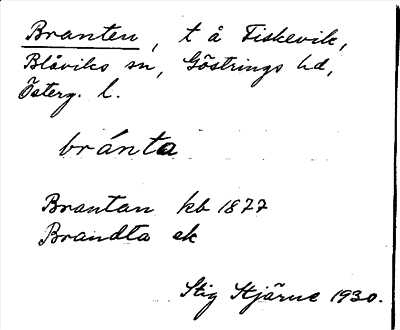 Branten, t å Fiskevik,
Blåviks sn, Göstrings hd,
Österg. l.
bránta
Brantan kb 1877
Brandta ek
Stig Stjärne 1930.